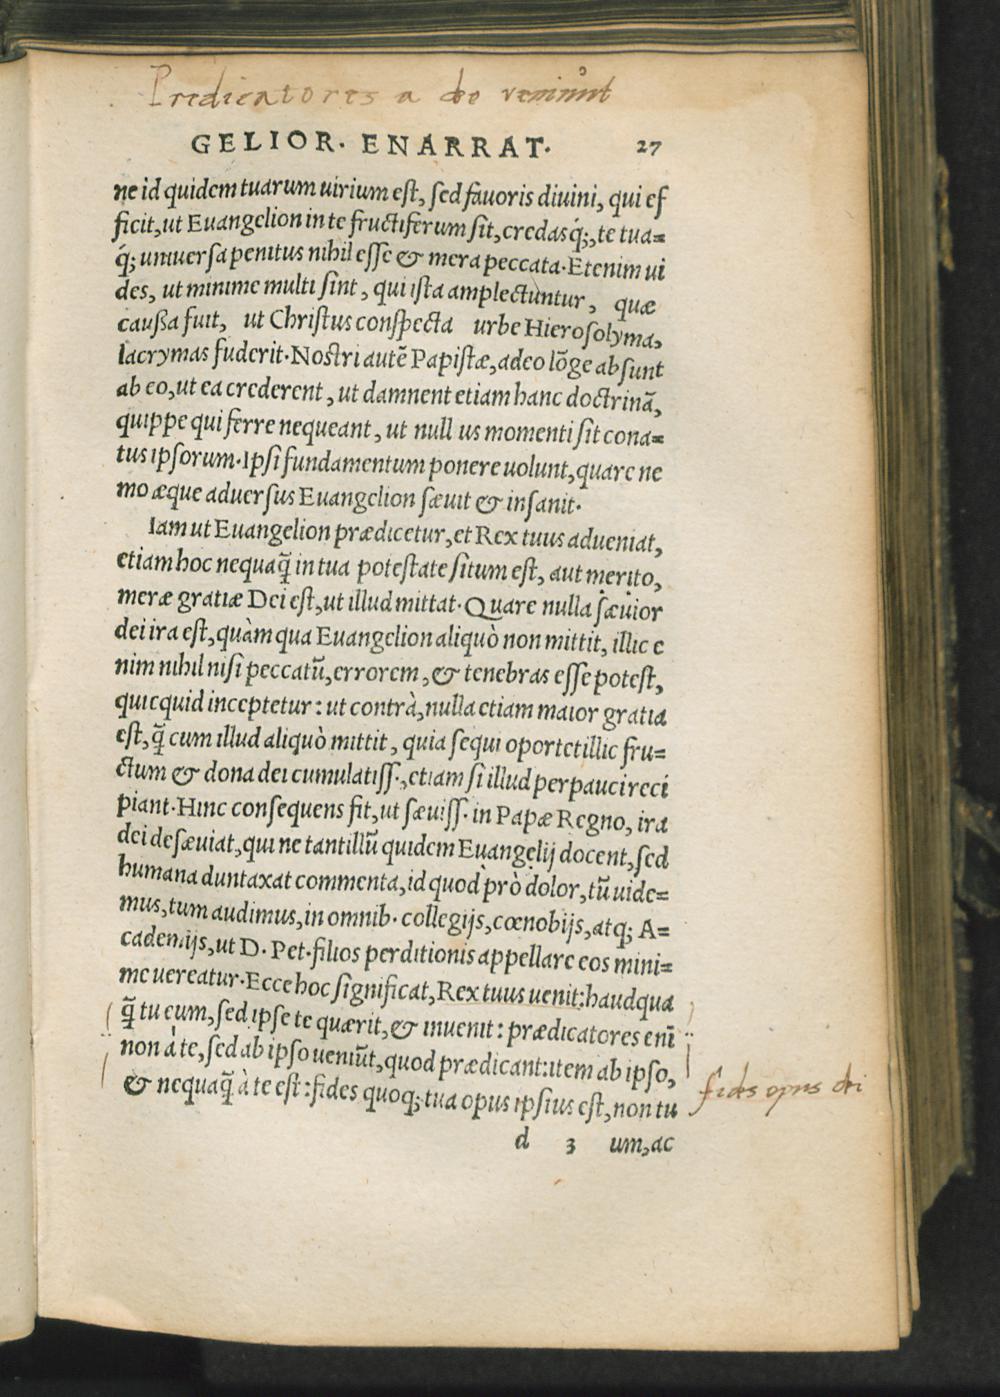 Predicatores a deo veniũt
GELIOR. ENARRAT. 27
ne id quidem tuarum uirium est, sed fauoris diuini, qui ef
ficit, ut Euangelion in te fructiferum sit, credasq́;, te tua=
q́; uniuersa penitus nihil esse & mera peccata. Etenim ui
des, ut minime multi sint, qui ista amplectuntur, quæ
caußa fuit, ut Christus conspecta urbe Hierosolyma,
lacrymas fuderit. Nostri autẽ Papistæ, adeo lõge absunt
ab eo, ut ea crederent, ut damnent etiam hanc doctrinã,
quippe qui ferre nequeant, ut null us momenti sit cona=
tus ipsorum. Ipsi fundamentum ponere uolunt, quare ne
mo æque aduersus Euangelion sæuit & insanit.
Iam ut Euangelion prædicetur, et Rex tuus adueniat,
etiam hoc nequaq̃ in tua potestate situm est, aut merito,
meræ gratiæ Dei est, ut illud mittat. Quare nulla sæuior
dei ira est, quàm qua Euangelion aliquò non mittit, illic e
nim nihil nisi peccatũ, errorem, & tenebras esse potest,
quicquid inceptetur: ut contrà, nulla etiam maior gratia
est, q̃ cum illud aliquò mittit, quia sequi oportet illic fru=
ctum & dona dei cumulatiss., etiam si illud perpauci reci
piant. Hinc consequens fit, ut sæuiss. in Papæ Regno, ira
dei desæuiat, qui ne tantillũ quidem Euangelij docent, sed
humana duntaxat commenta, id quod prò dolor, tũ uide=
mus, tum audimus, in omnib. collegijs, cœnobijs, atq; A=
cademijs, ut D. Pet. filios perditionis appellare eos mini=
me uereatur. Ecce hoc significat, Rex tuus uenit: haudqua
q̃ tu eum, sed ipse te quærit, & inuenit: prædicatores enĩ
non à te, sed ab ipso ueniũt, quod prædicant: item ab ipso,
& nequaq̃ à te est: fides quoq; tua opus ipsius est, non tu
fides opus dei
d 3 um, ac